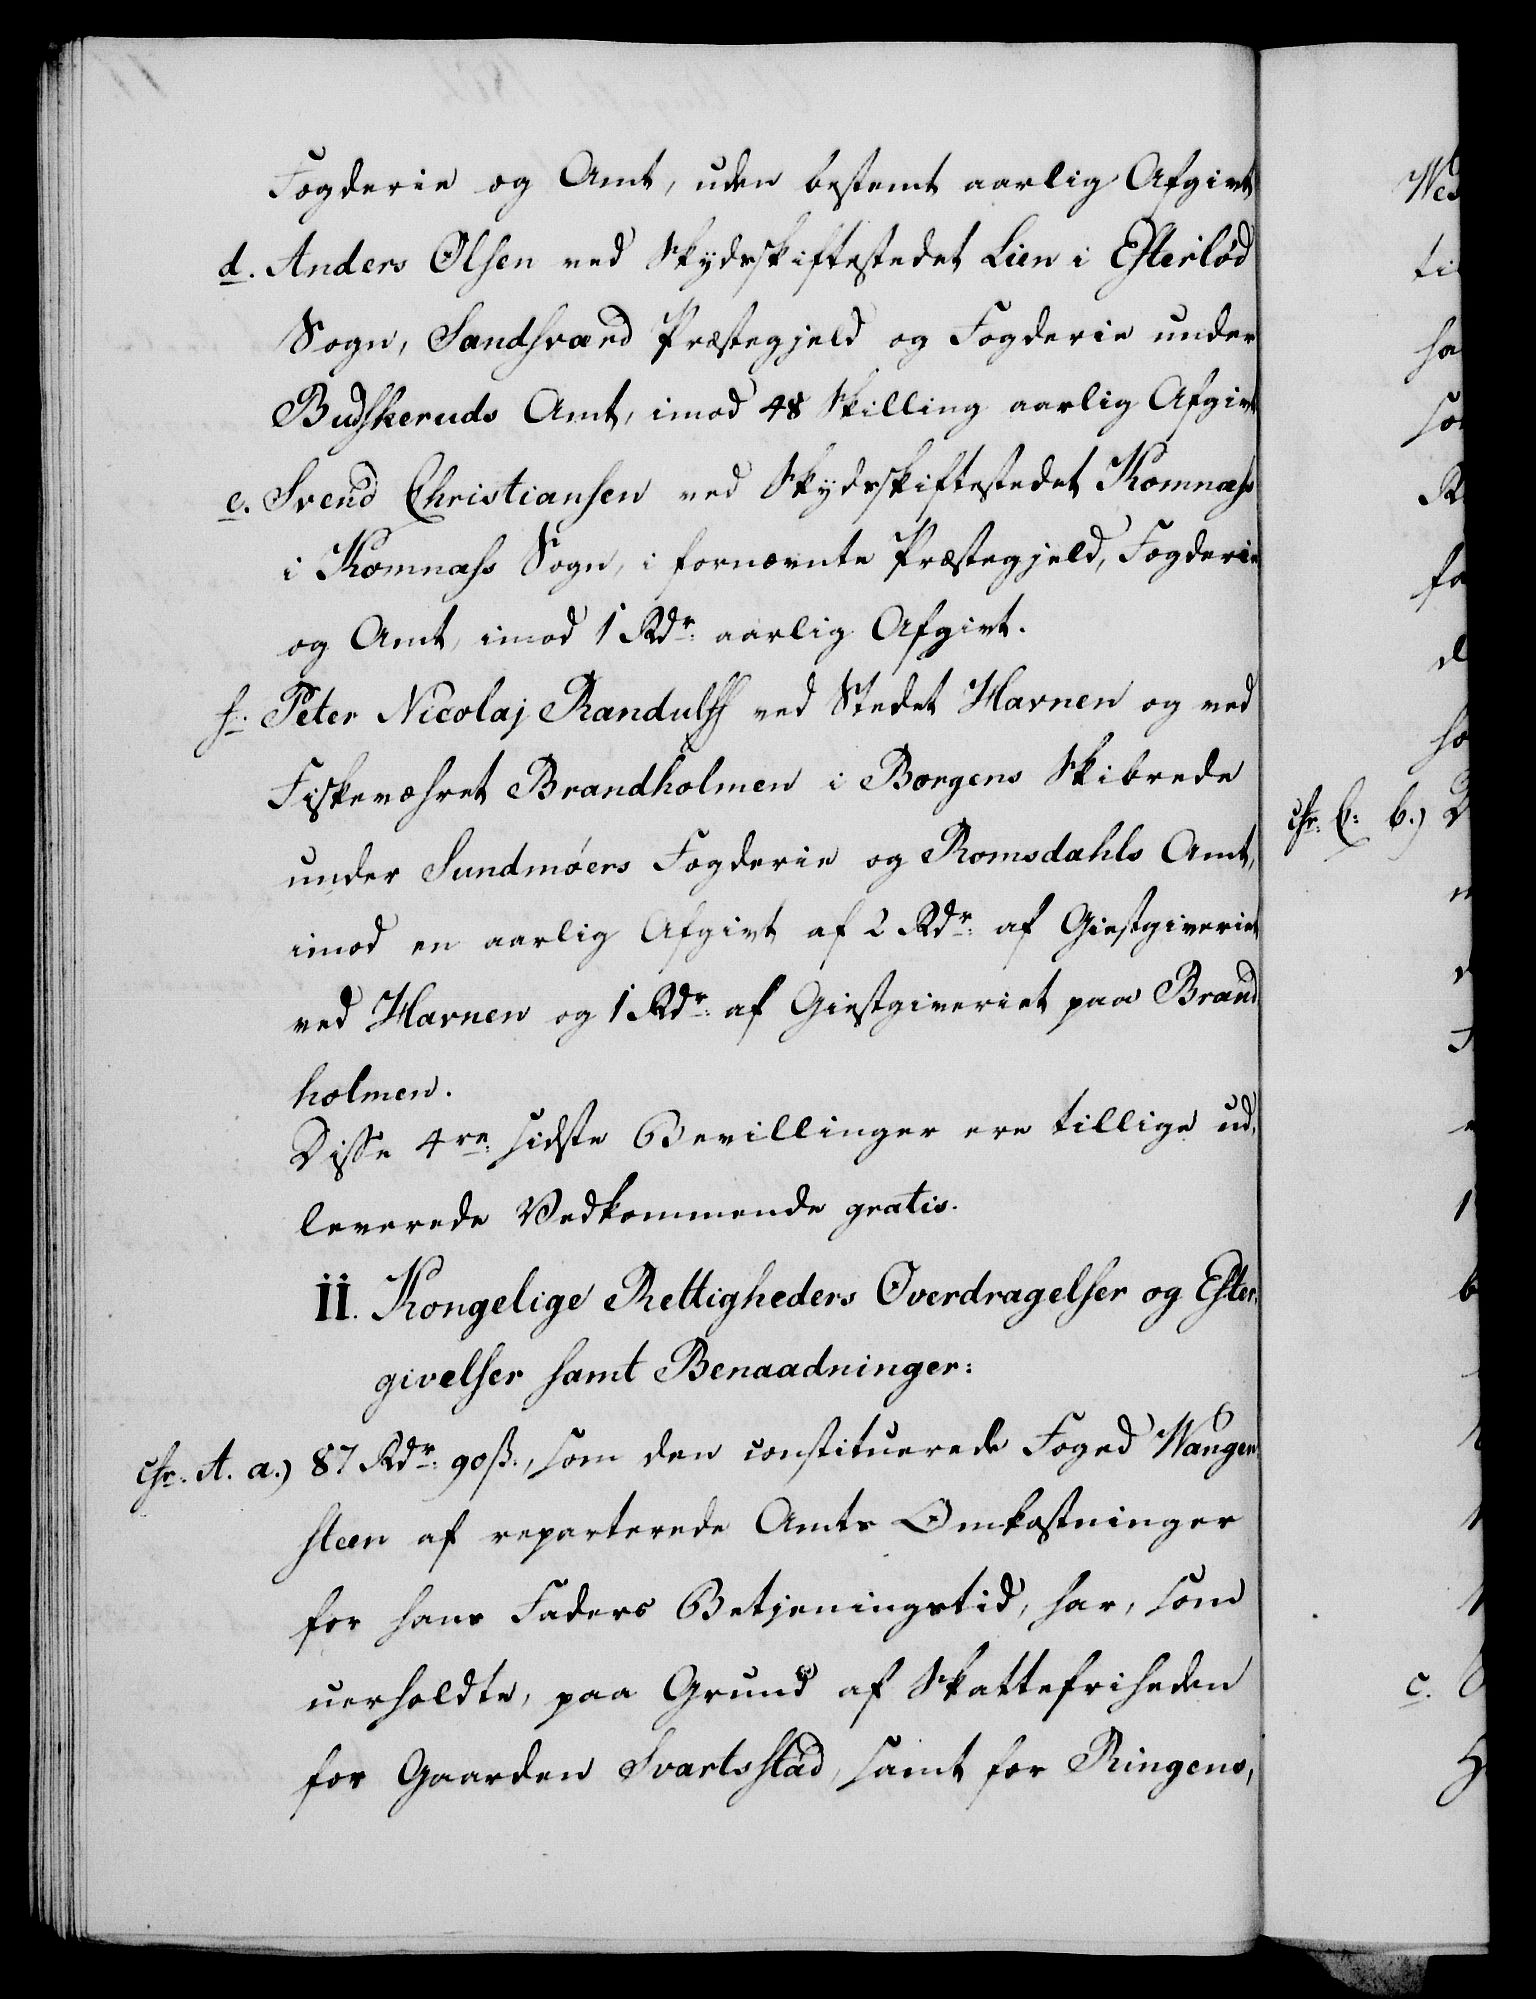 Fogderie og Amt, uden bestemt aarlig Afgivt
d. Anders Olsen ved Skydsskiftestedet Lien i Efterløb
Sogn, Sandsværd Præstegjeld og Fogderie under
Budskeruds Amt, imod 48 Skilling aarlig Afgivt
e. Svend Christiansen ved Skydsskiftestedet Komnæss
i Komnæss Sogn, i fornævnte Præstegjeld, Fogderie
og Amt, imod 1 Rdr: aarlig Afgivt.
f. Peter Nicolaj Randulff ved Stedet Havnen og ved
Fiskeværet Brandholmen i Borgens Skibrede
under Sundmöers Fogderie og Romsdahls Amt,
imod en aarlig Afgivt af 2 Rdr: af Giestgiveriet
ved Havnen og 1 Rdr: af Giestgiveriet paa Brand
holmen.
Disse 4re: sidste Bevillinger ere tillige ud,
leverede Vedkommende gratis.
II. Kongelige Rettigheders Overdragelser og Efter,
givelser samt Benaadninger:
chr. A. a.) 87 Rdr: 90 ß., som den constituerede Foged Wangen
steen af reparterede Amts Omkostninger
for hans Faders Betjeningstid, har, som
uerholdte, paa Grund af Skattefriheden
for Gaarden Svartsstad, samt for Ringens,
Wed
ti
ha
so
fa
d
ho
chr. C. b.)
c.